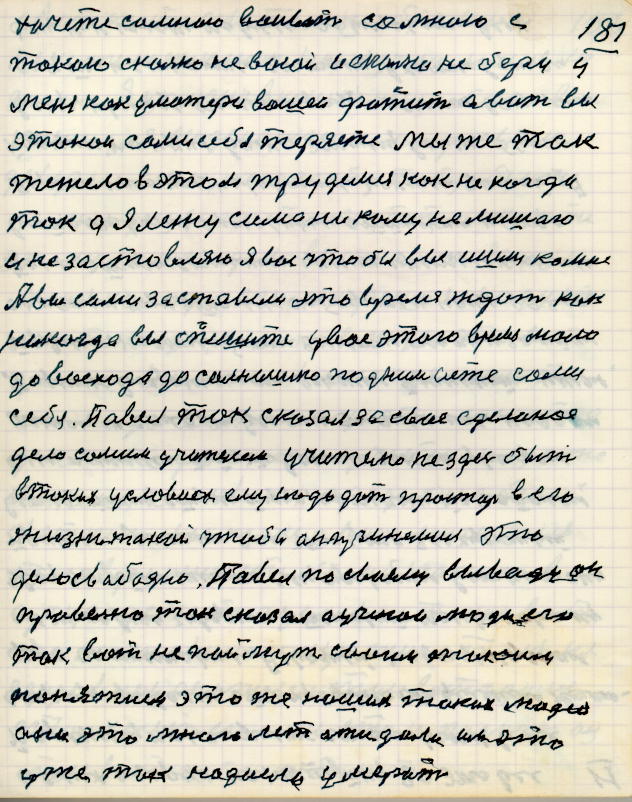 хочете самною ваивать самною с 181
такою сколко не воюй и сколко не бери у
меня как уматери вашей фатит авот вы
этакои сами себя теряете Мы же так
тежело вэтом трудемся как не когда
так а Я лежу сима никому не мишаю
и не заставляю Я вас чтобы вы ишли комне
Авы сами заставили это время ждат как
никогда вы спешите увас этого время мало
до восхода до солнышко подымаете сами
себя. Павел так сказал засвае сделаное
дело самим учителем учителю не здес быт
втоких условиях ему надо дат простар вего
жизни такой чтобы он принемал это
дело свабодно, Павел по своему вываду он
правелно так сказал аучоной люди его
так вот не поймут своим таким
понятием это же наших таких людеи
ани это много лет ажидали им это
уже так надоело умерат